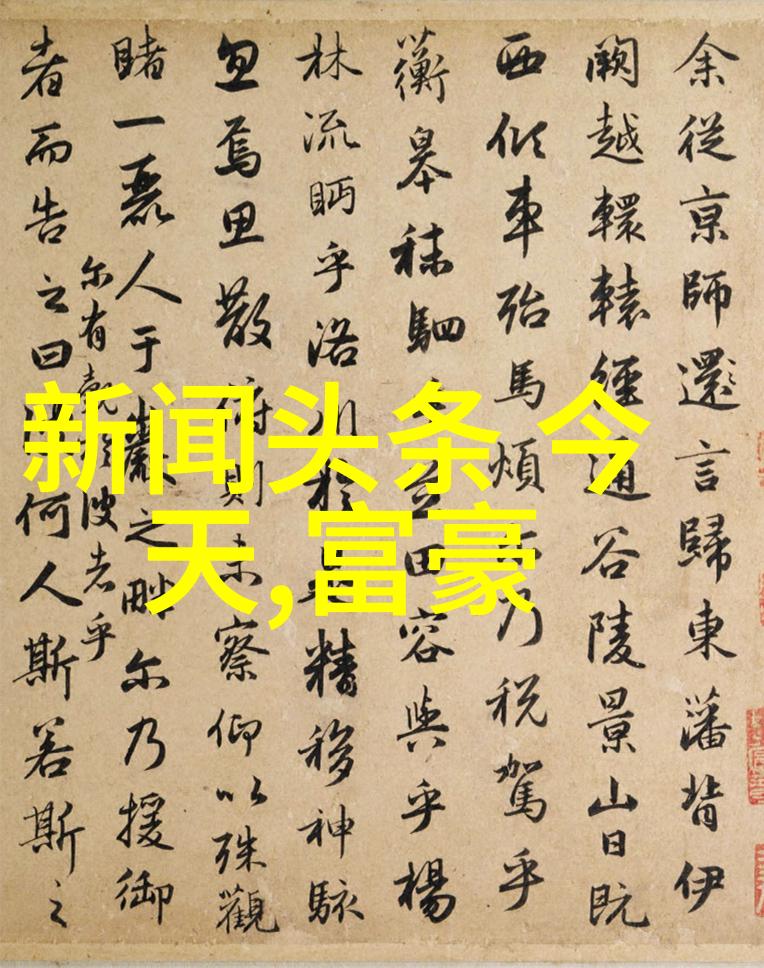 新闻头条 今
天,富豪
余從京師還言歸東藩背伊
闕越轘轅經通谷陵景山日既
西傾車殆馬煩乃税駕乎
蘅皋秣駟田容與乎楊
林流眄乎洛川於是精移神駭
忽焉思散俯則未察仰以殊觀
睹一麗人于巖之畔尔乃援御
者而告之曰何人斯若斯之
尔有彼者乎